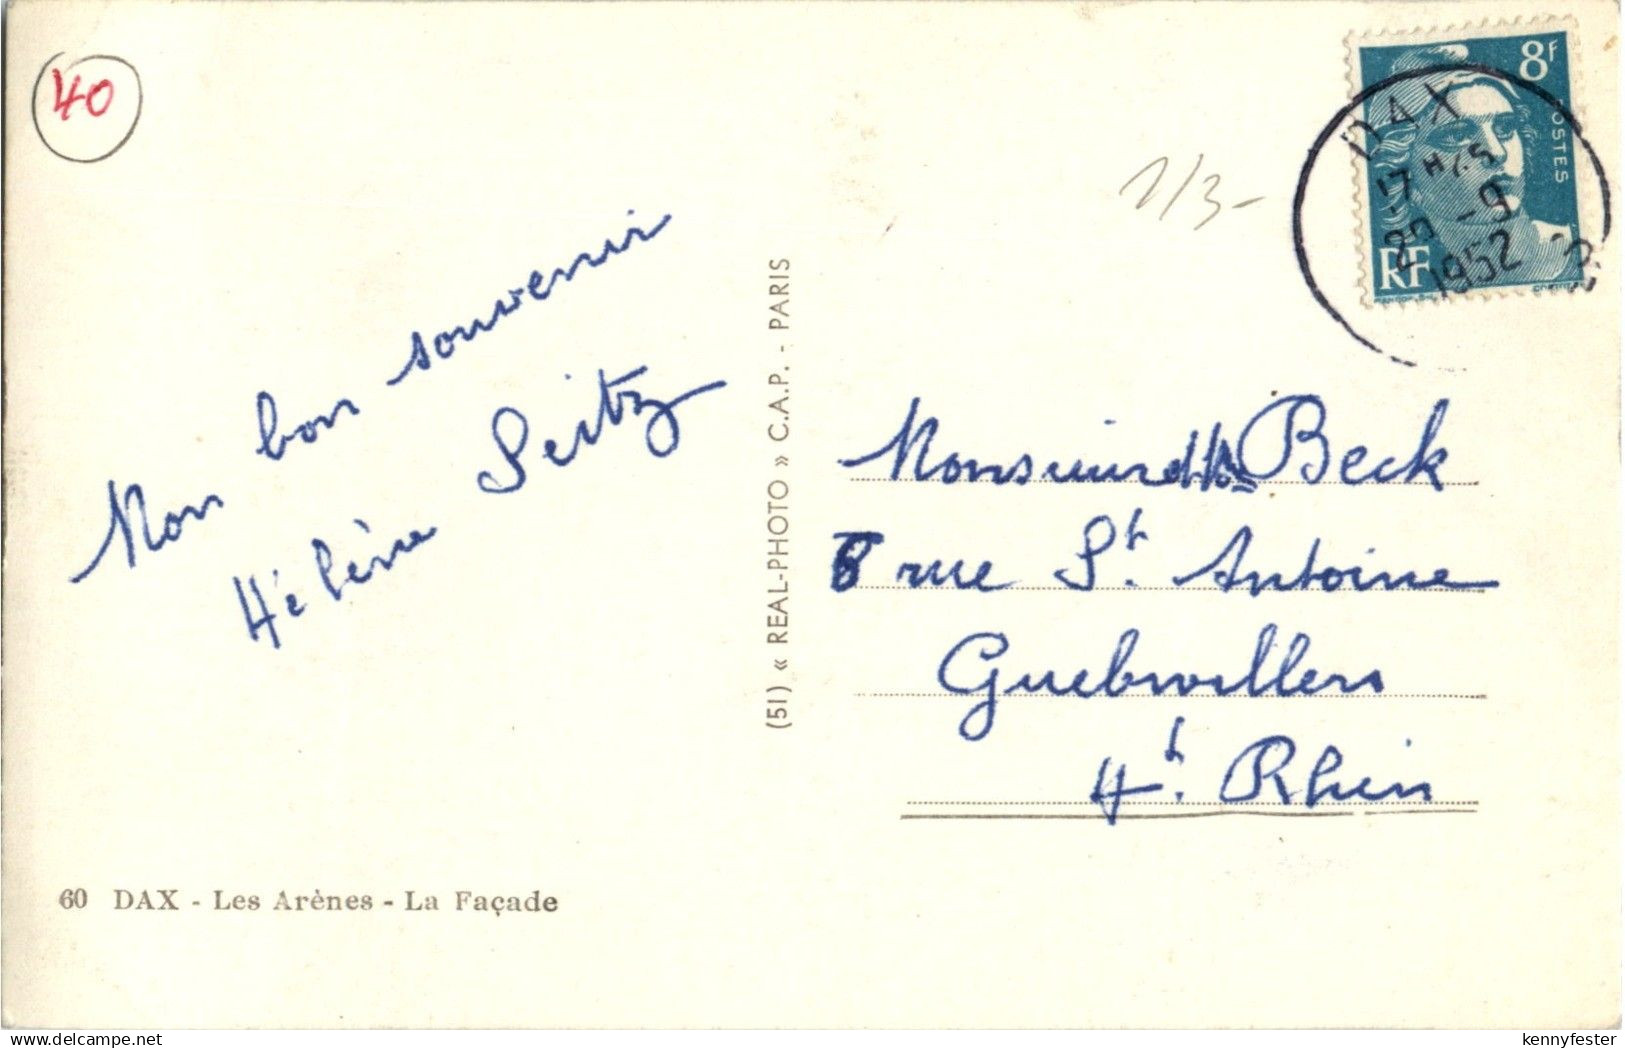 40
Mon bon souvenir
Hélène Seitz
60 DAX - Les Arènes - La Façade
(51) « REAL-PHOTO » C.A.P. - PARIS
1/3-
8F
POSTES
RF
DAX
17H45
29-9
1952
Monsieur et Me Beck
8 rue St. Antoine
Guebwiller
Ht. Rhin
kennyfester